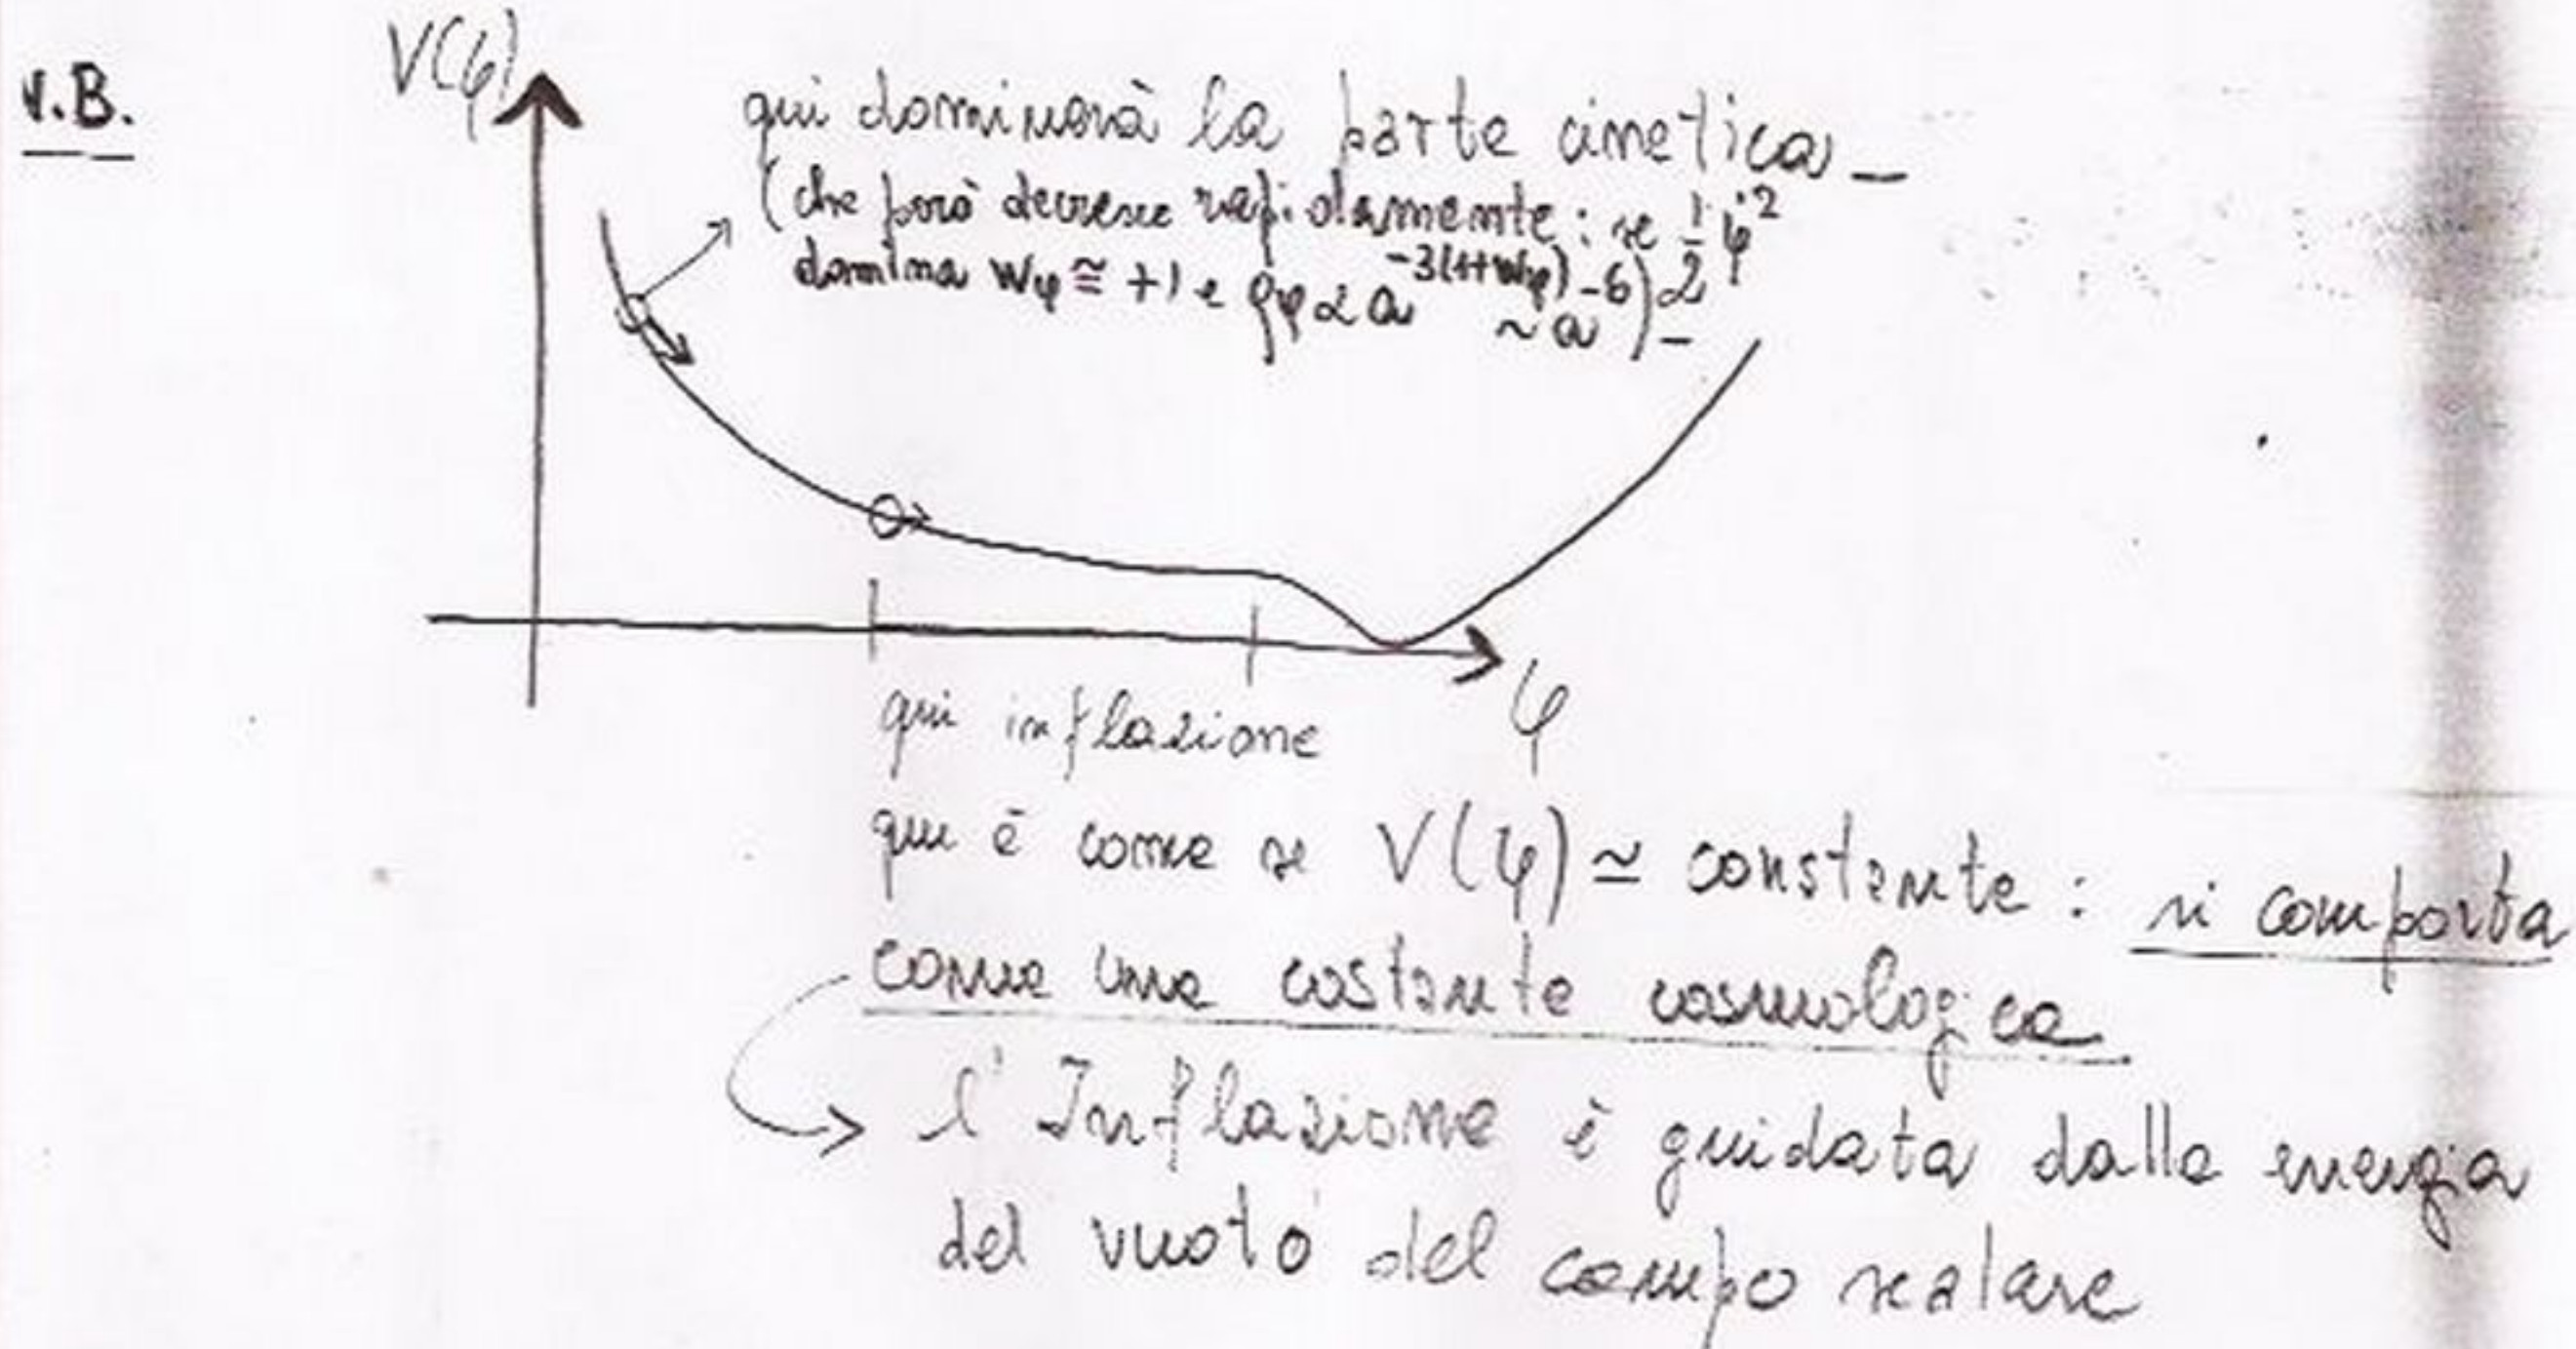 N.B.
V(φ)
qui dominerà la parte cinetica -
(che però decresce rapidamente: se 1/2 φ̇²
domina wφ ≅ +1 e ρφ ∝ a^-3(1+wφ) ~ a^-6) -
φ
qui inflazione
qui è come se V(φ) ≃ constante : si comporta
come una costante cosmologica
l'Inflazione è guidata dalla energia
del vuoto del campo scalare